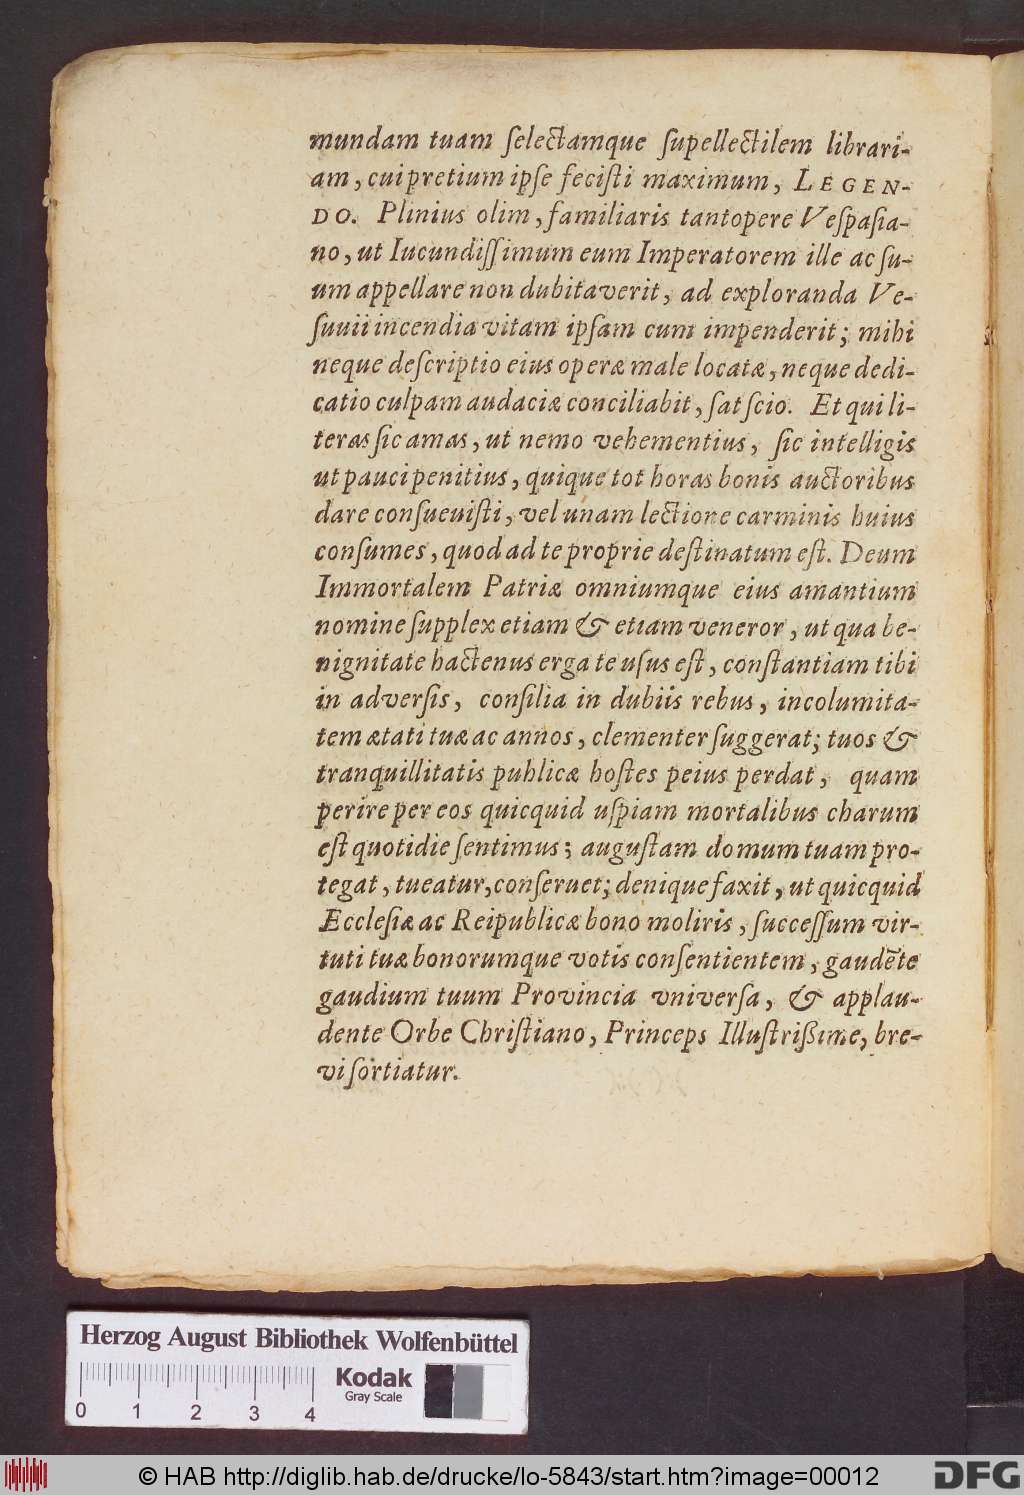 mundam tuam ſelectamque ſupellectilem librari-
am, cui pretium ipſe feciſti maximum, LEGEN-
DO. Plinius olim, familiaris tantopere Veſpaſia-
no, ut Iucundiſſimum eum Imperatorem ille ac ſu-
um appellare non dubitaverit, ad exploranda Ve-
ſuuii incendia vitam ipſam cum impenderit; mihi
neque deſcriptio eius operæ male locatæ, neque dedi-
catio culpam audaciæ conciliabit, ſat ſcio. Et qui li-
teras ſic amas, ut nemo vehementius, ſic intelligis
ut pauci penitius, quique tot horas bonis auctoribus
dare conſueuiſti, vel unam lectione carminis huius
conſumes, quod ad te proprie deſtinatum eſt. Deum
Immortalem Patriæ omniumque eius amantium
nomine ſupplex etiam & etiam veneror, ut qua be-
nignitate hactenus erga te uſus eſt, conſtantiam tibi
in adverſis, conſilia in dubiis rebus, incolumita-
tem ætati tuæ ac annos, clementer ſuggerat; tuos &
tranquillitatis publicæ hoſtes peius perdat, quam
perire per eos quicquid uſpiam mortalibus charum
eſt quotidie ſentimus; auguſtam domum tuam pro-
tegat, tueatur, conſeruet; denique faxit, ut quicquid
Eccleſiæ ac Reipublicæ bono moliris, ſucceſſum vir-
tuti tuæ bonorumque votis conſentientem, gaudēte
gaudium tuum Provincia vniverſa, & applau-
dente Orbe Chriſtiano, Princeps Illuſtrißime, bre-
vi ſortiatur.
Herzog August Bibliothek Wolfenbüttel
Kodak
Gray Scale
0 1 2 3 4
© HAB http://diglib.hab.de/drucke/lo-5843/start.htm?image=00012
DFG